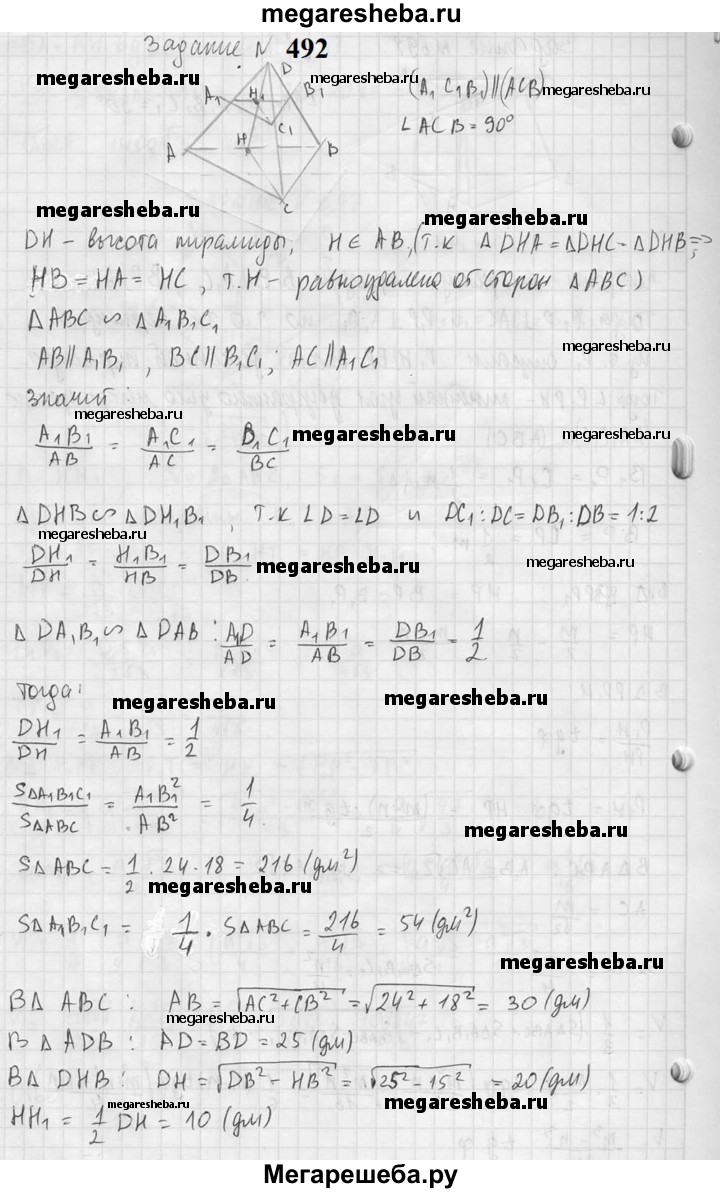 megaresheba.ru
Задание N 492
megaresheba.ru
D
A₁ H₁ B₁
(A₁ C₁ B₁) || (ACB)
megaresheba.ru
C₁
∠ ACB = 90°
A H B
C
megaresheba.ru
megaresheba.ru
DH - высота пирамиды, H ∈ AB, (т.к Δ DHA = Δ DHC - Δ DHB ⇒
HB = HA = HC , т.H - равноудалена от сторон Δ ABC)
Δ ABC ∽ Δ A₁B₁C₁
megaresheba.ru
AB || A₁B₁ , BC || B₁C₁ ; AC || A₁C₁
значит :
megaresheba.ru
A₁B₁/AB = A₁C₁/AC = B₁C₁/BC
megaresheba.ru
Δ DHB ∽ Δ DH₁B₁ , т.к ∠D = ∠D и DC₁ : DC = DB₁ : DB = 1:2
megaresheba.ru
DH₁/DH = H₁B₁/HB = DB₁/DB
megaresheba.ru
megaresheba.ru
Δ DA₁B₁ ∽ Δ DAB : A₁D/AD = A₁B₁/AB = DB₁/DB = 1/2
megaresheba.ru
тогда:
megaresheba.ru
DH₁/DH = A₁B₁/AB = 1/2
SΔA₁B₁C₁/SΔABC = A₁B₁²/AB² = 1/4
megaresheba.ru
SΔ ABC = 1/2 · 24 · 18 = 216 (дм²)
megaresheba.ru
SΔ A₁B₁C₁ = 1/4 · SΔ ABC = 216/4 = 54 (дм²)
megaresheba.ru
В Δ ABC : AB = √AC² + CB² = √24² + 18² = 30 (дм)
megaresheba.ru
В Δ ADB : AD = BD = 25 (дм)
В Δ DHB : DH = √DB² - HB² = √25² - 15² = 20 (дм)
megaresheba.ru
megaresheba.ru
HH₁ = 1/2 DH = 10 (дм)
Мегарешеба.ру